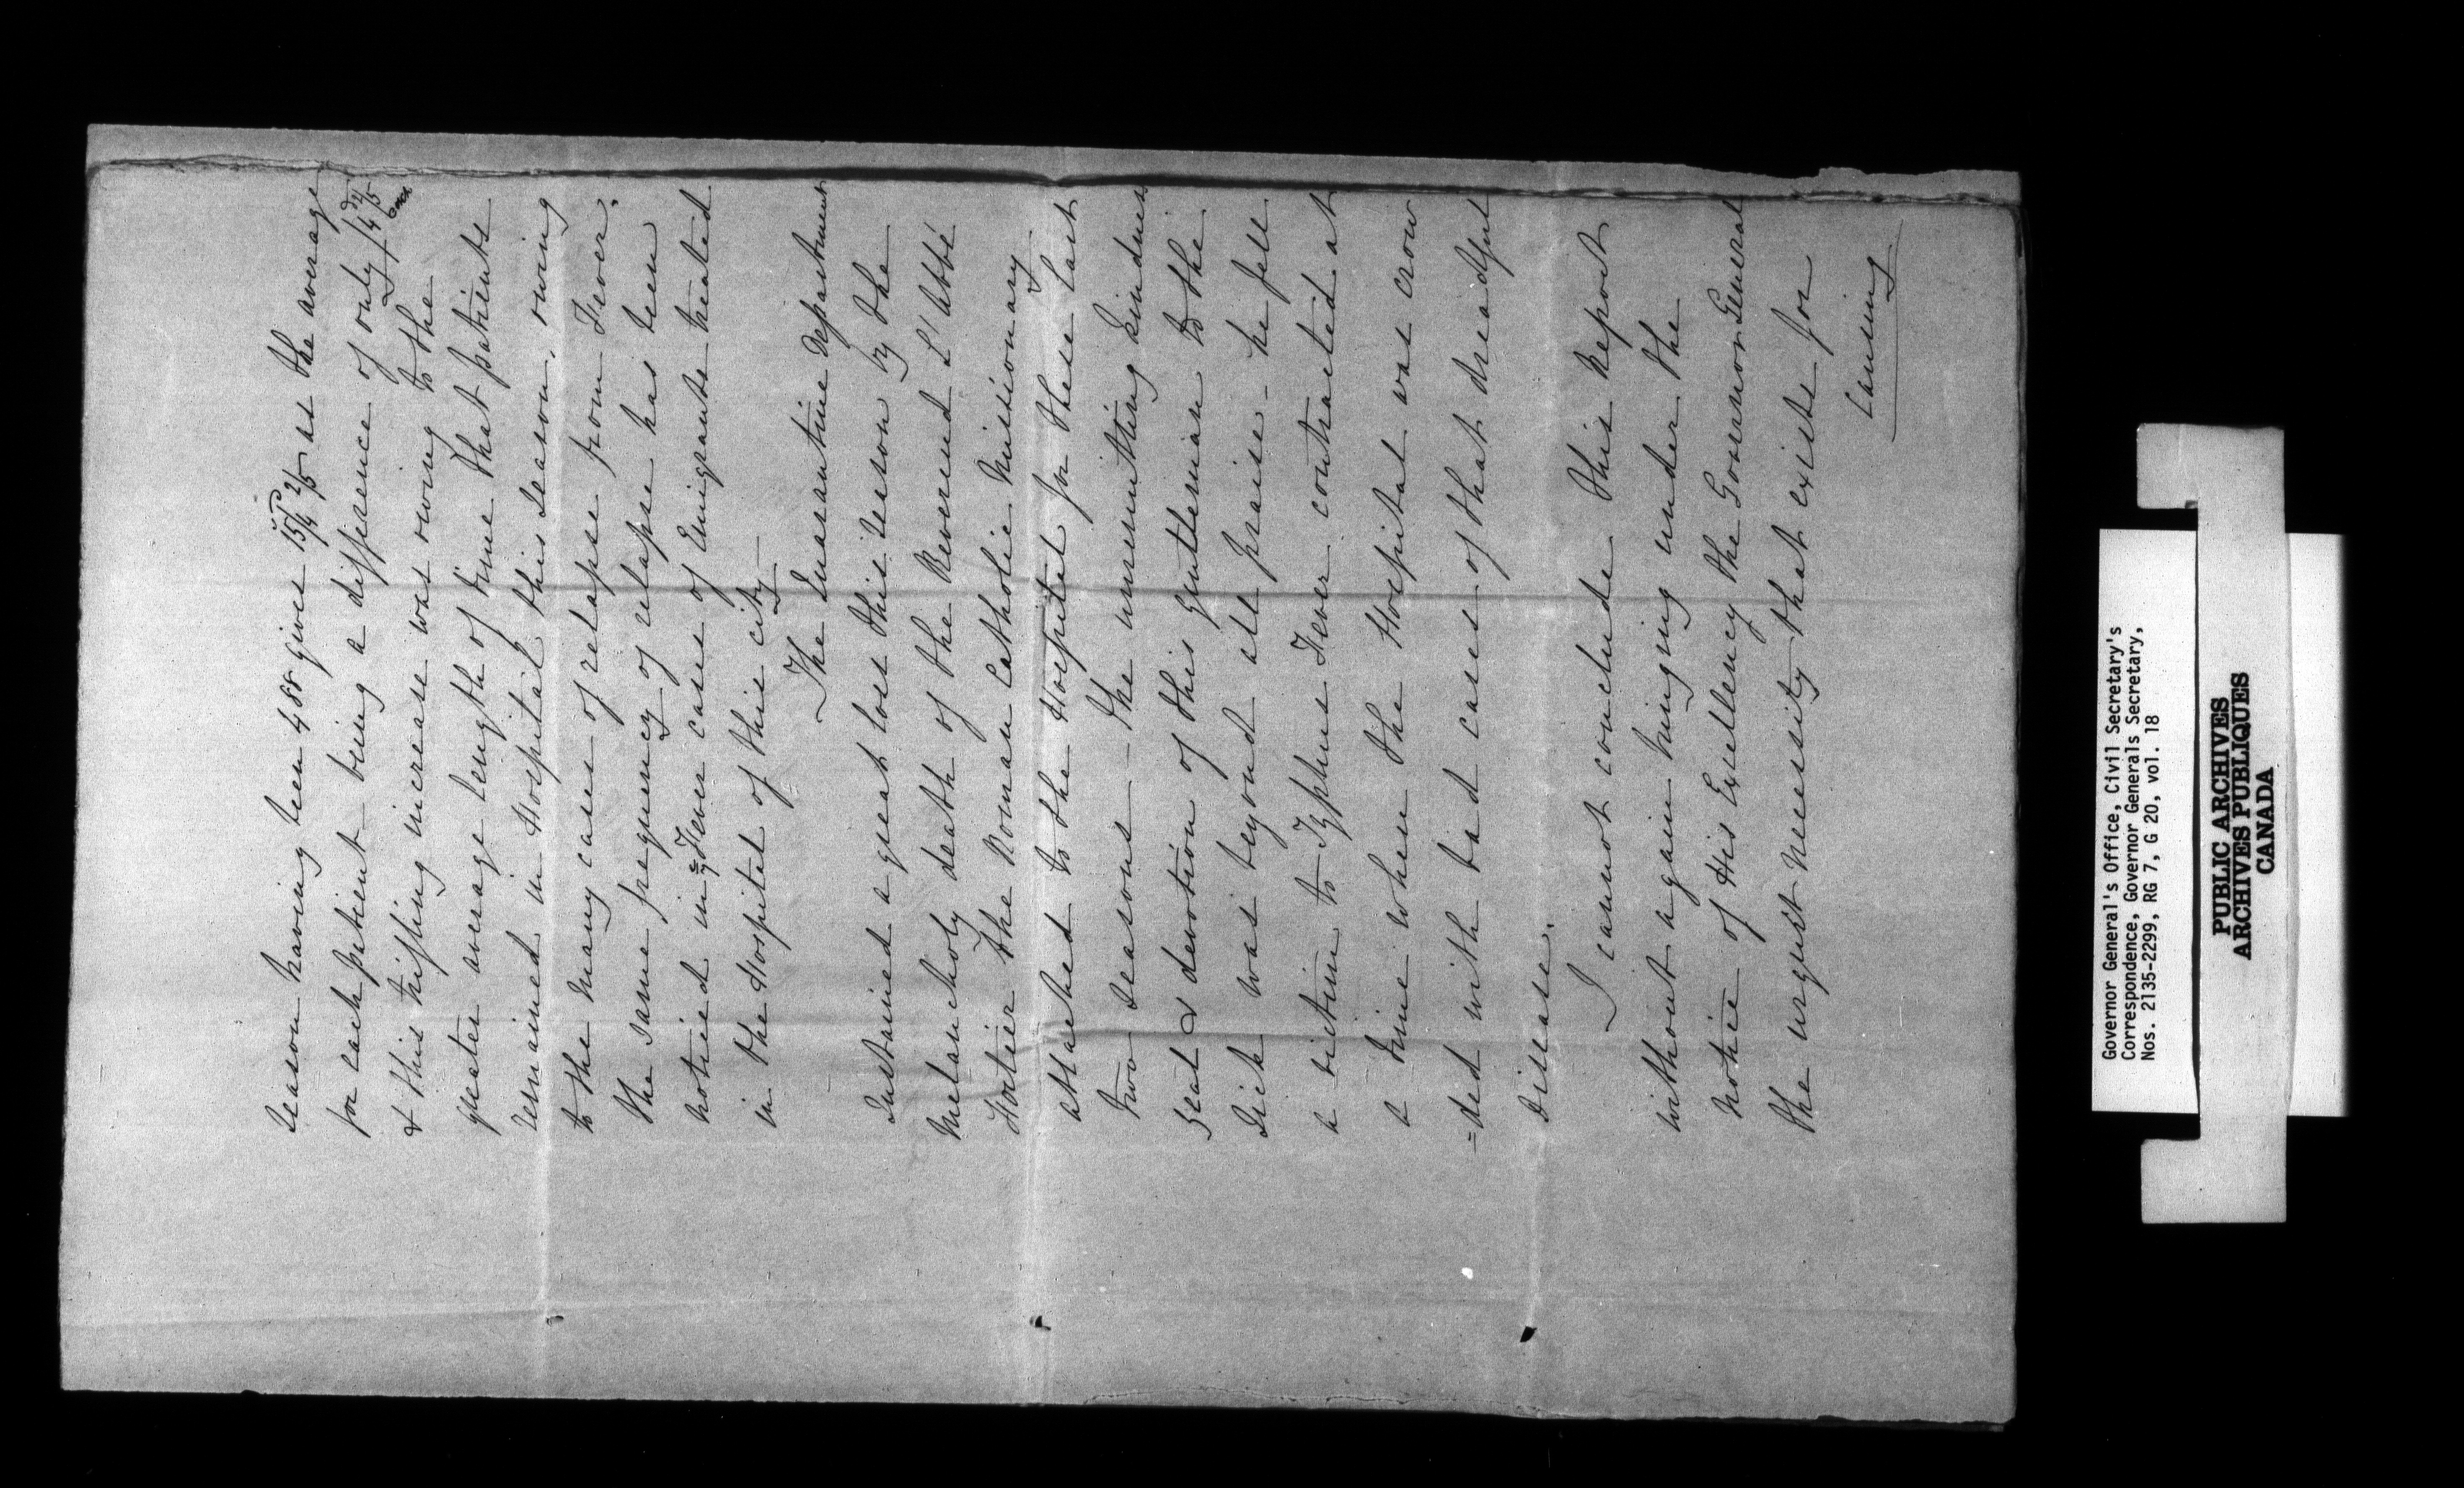 Season having been 488 gives 15/4 2/5 as the average
for each patient being a difference of only 4 4/5 each
& this trifling increase was owing to the
greater average length of time that patients
remained in Hospital this Season, owing
to the many cases of relapse from Fever.
The same frequency of relapse has been
noticed in Fever cases of Emigrants treated
in the Hospital of this city—
The Quarantine Department
Sustained a great loss this Season by the
Melancholy death of the Reverend L'Abbé
Fortier the Roman Catholic Missionary
attached to the Hospital for these last
two Seasons— The unremitting kindness
zeal & devotion of this gentleman to the
Sick was beyond all praise— he fell
a victim to Typhus Fever contracted at
a time when the Hospital was crow
=ded with bad cases of that dreadful
disease.
I cannot conclude this Report
without again bringing under the
notice of His Excellency the Governor General
the urgent necessity that exists for
causing
Governor General's Office, Civil Secretary's
Correspondence, Governor Generals Secretary,
Nos. 2135-2299, RG 7, G 20, vol. 18
PUBLIC ARCHIVES
ARCHIVES PUBLIQUES
CANADA